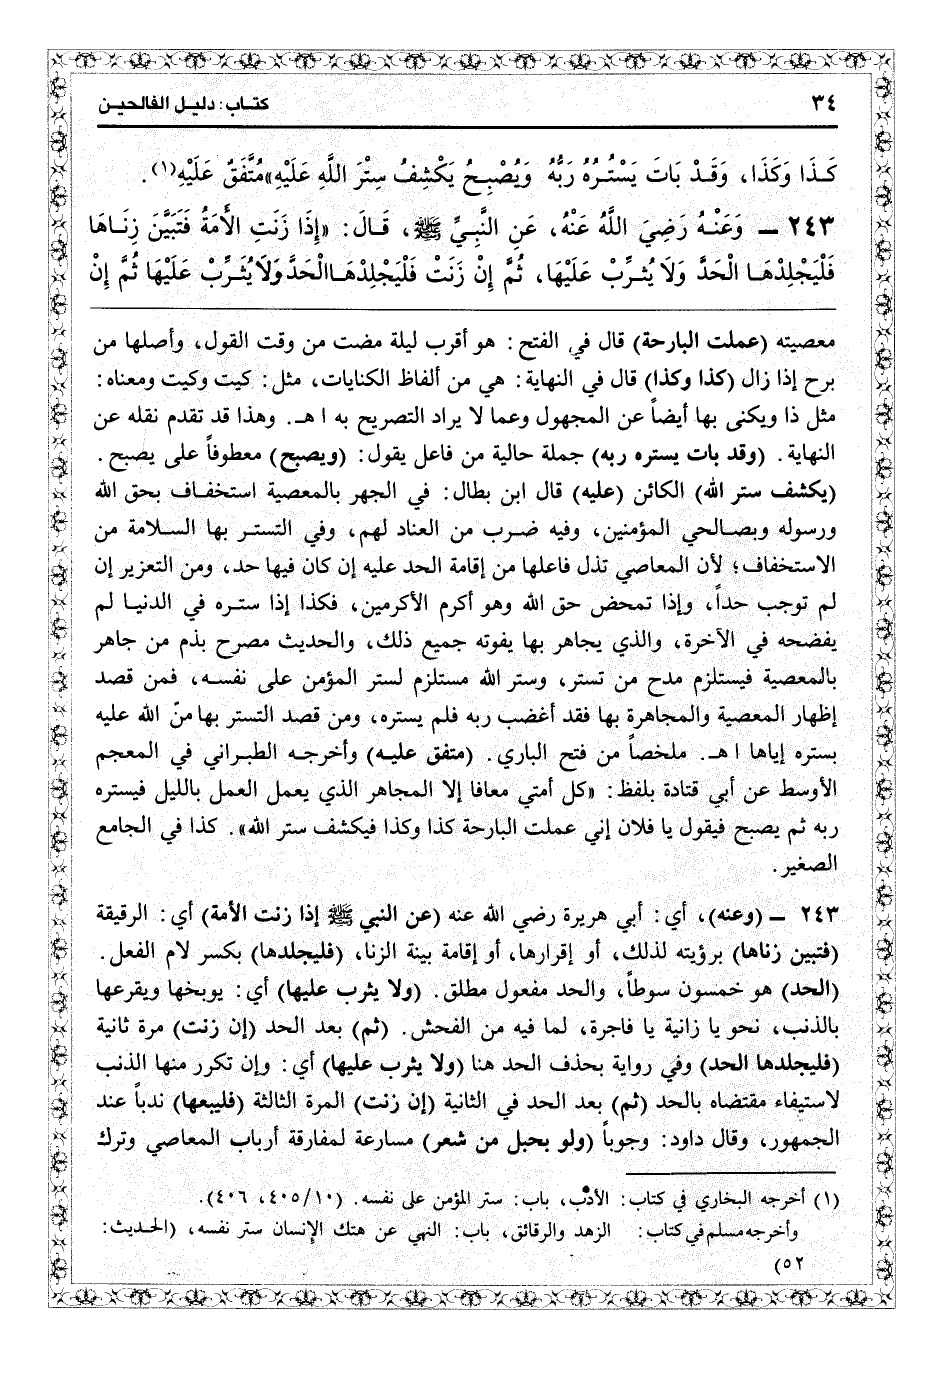 ٣٤
كتاب: دليل الفالحين
كَذَا وَكَذَا، وَقَدْ بَاتَ يَسْتُرُهُ رَبُّهُ وَيُصْبِحُ يَكْشِفُ سِتْرَ اللَّهِ عَلَيْهِ» مُتَّفَقٌ عَلَيْهِ(١).
٢٤٣ ـ وَعَنْهُ رَضِيَ اللَّهُ عَنْهُ، عَنِ النَّبِيِّ ﷺ، قَالَ: «إِذَا زَنَتِ الأَمَةُ فَتَبَيَّنَ زِنَاهَا
فَلْيَجْلِدْهَا الْحَدَّ وَلَا يُثَرِّبْ عَلَيْهَا، ثُمَّ إِنْ زَنَتْ فَلْيَجْلِدْهَا الْحَدَّ وَلَا يُثَرِّبْ عَلَيْهَا ثُمَّ إِنْ
معصيته (عملت البارحة) قال في الفتح: هو أقرب ليلة مضت من وقت القول، وأصلها من
برح إذا زال (كذا وكذا) قال في النهاية: هي من ألفاظ الكنايات، مثل: كيت وكيت ومعناه:
مثل ذا ويكنى بها أيضاً عن المجهول وعما لا يراد التصريح به ا هـ. وهذا قد تقدم نقله عن
النهاية. (وقد بات يستره ربه) جملة حالية من فاعل يقول: (ويصبح) معطوفاً على يصبح.
(يكشف ستر الله) الكائن (عليه) قال ابن بطال: في الجهر بالمعصية استخفاف بحق الله
ورسوله وبصالحي المؤمنين، وفيه ضرب من العناد لهم، وفي التستر بها السلامة من
الاستخفاف؛ لأن المعاصي تذل فاعلها من إقامة الحد عليه إن كان فيها حد، ومن التعزير إن
لم توجب حداً، وإذا تمحض حق الله وهو أكرم الأكرمين، فكذا إذا ستره في الدنيا لم
يفضحه في الآخرة، والذي يجاهر بها يفوته جميع ذلك، والحديث مصرح بذم من جاهر
بالمعصية فيستلزم مدح من تستر، وستر الله مستلزم لستر المؤمن على نفسه، فمن قصد
إظهار المعصية والمجاهرة بها فقد أغضب ربه فلم يستره، ومن قصد التستر بها منّ الله عليه
بستره إياها ا هـ. ملخصاً من فتح الباري. (متفق عليه) وأخرجه الطبراني في المعجم
الأوسط عن أبي قتادة بلفظ: «كل أمتي معافا إلا المجاهر الذي يعمل العمل بالليل فيستره
ربه ثم يصبح فيقول يا فلان إني عملت البارحة كذا وكذا فيكشف ستر الله». كذا في الجامع
الصغير.
٢٤٣ ـ (وعنه)، أي: أبي هريرة رضي الله عنه (عن النبي ﷺ إذا زنت الأمة) أي: الرقيقة
(فتبين زناها) برؤيته لذلك، أو إقرارها، أو إقامة بينة الزنا، (فليجلدها) بكسر لام الفعل.
(الحد) هو خمسون سوطاً، والحد مفعول مطلق. (ولا يثرب عليها) أي: يوبخها ويقرعها
بالذنب، نحو يا زانية يا فاجرة، لما فيه من الفحش. (ثم) بعد الحد (إن زنت) مرة ثانية
(فليجلدها الحد) وفي رواية بحذف الحد هنا (ولا يثرب عليها) أي: وإن تكرر منها الذنب
لاستيفاء مقتضاه بالحد (ثم) بعد الحد في الثانية (إن زنت) المرة الثالثة (فليبعها) ندباً عند
الجمهور، وقال داود: وجوباً (ولو بحبل من شعر) مسارعة لمفارقة أرباب المعاصي وترك
(١) أخرجه البخاري في كتاب: الأدب، باب: ستر المؤمن على نفسه. (٤٠٥/١٠، ٤٠٦).
وأخرجه مسلم في كتاب: الزهد والرقائق، باب: النهي عن هتك الإنسان ستر نفسه، (الحديث:
٥٢)